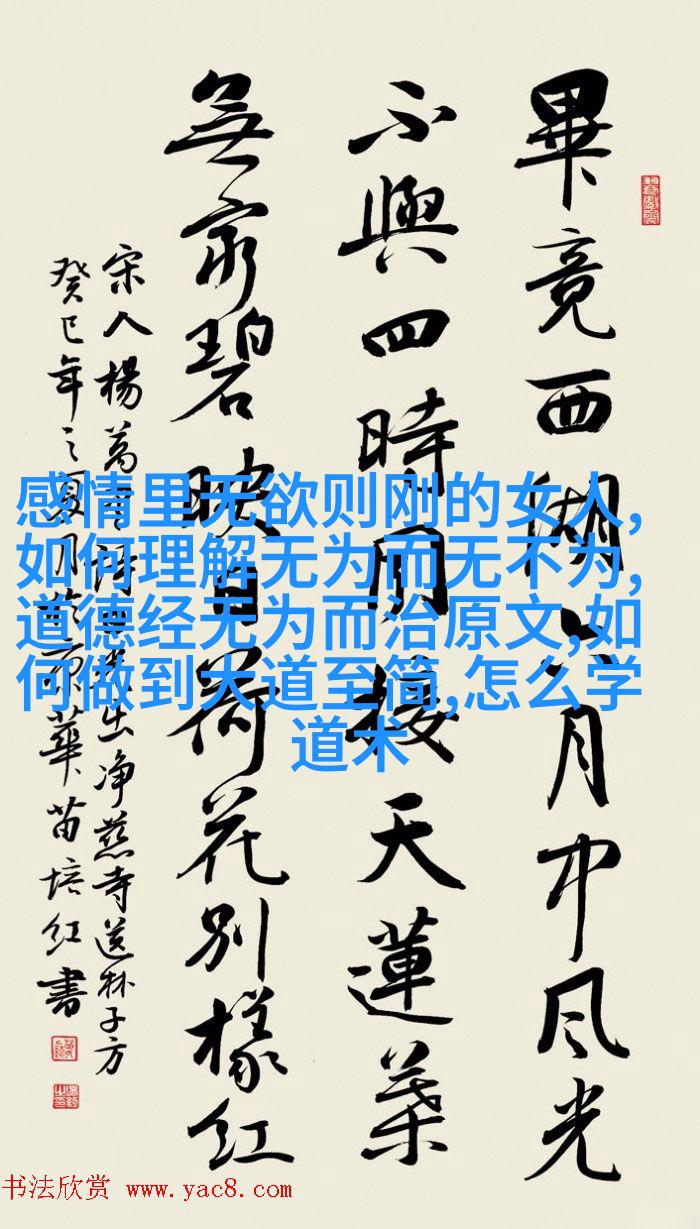 畢竟西湖六月中风光
不與四時同接天蓮葉
無窮碧映日荷花别樣红
宋人楊萬里詩出净慈寺送林子方
癸巳年之夏月於京華苗培红書
感情里无欲则刚的女人,
如何理解无为而无不为,
道德经无为而治原文,如
何做到大道至简,怎么学
道术
书法欣赏 www.yac8.com